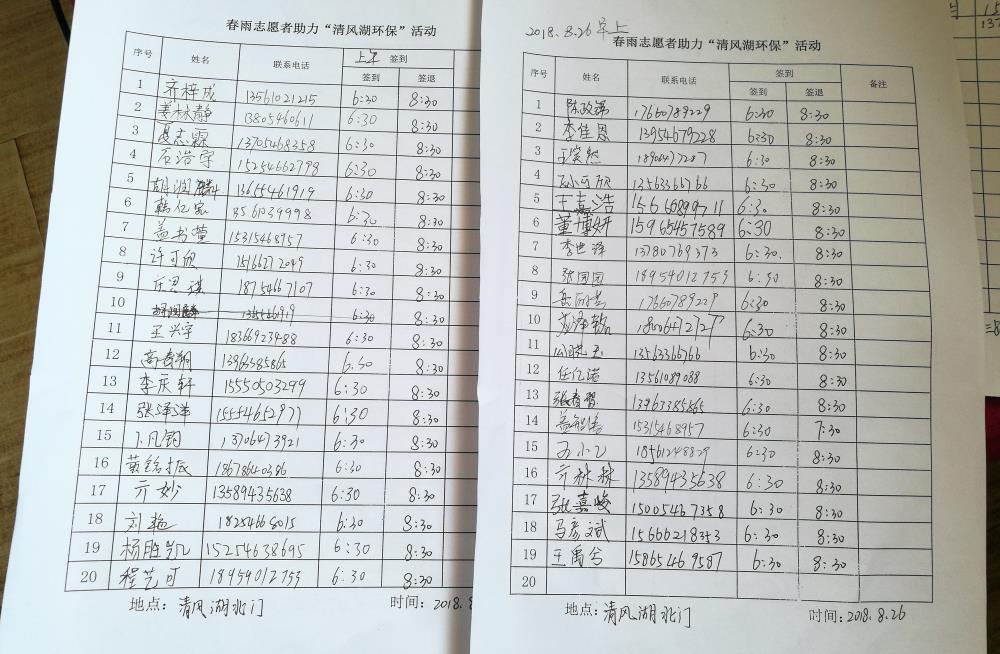 春雨志愿者助力“清风湖环保”活动
序号 姓名 联系电话 上午 签到
签到 签退
1 齐梓成 13561021215 6:30 8:30
2 姜林静 13805460611 6:30 8:30
3 夏志霖 13705468358 6:30 8:30
4 石浩宇 15254662778 6:30 8:30
5 胡润麟 13655461919 6:30 8:30
6 韩亿家 8561039998 6:30 8:30
7 盖书萱 15315468957 6:30 8:30
8 许可欣 15166272049 6:30 8:30
9 18754667107 6:30 8:30
10 6:30 8:30
11 王兴宇 18366923488 6:30 8:30
12 高春翔 13963385865 6:30 8:30
13 李庆轩 15550503299 6:30 8:30
14 张泽洋 15554652977 6:30 8:30
15 卜凡钧 13706473921 6:30 8:30
16 黄铭振 18678640386 6:30 8:30
17 亓妙 13589435638 6:30 8:30
18 刘艳 18254668015 6:30 8:30
19 杨胜凯 15254638695 6:30 8:30
20 程艺可 18954012753 6:30 8:30
地点：清风湖北门 时间：2018.8
2018.8.26早上
春雨志愿者助力“清风湖环保”活动
序号 姓名 联系电话 签到 备注
签到 签退
1 陈政锦 17660789229 6:30 8:30
2 李佳恩 13954679228 6:30 8:30
3 王奕然 18906477287 6:30 8:30
4 孙可欣 13563366766 6:30 8:30
5 王嘉浩 15666899711 6:30 8:30
6 董博妍 15965457589 6:30 8:30
7 李世泽 13780769373 6:30 8:30
8 张园园 18954012753 6:30 8:30
9 17660789229 6:30 8:30
10 18006472727 6:30 8:30
11 公晓玉 13563366766 6:30 8:30
12 任亿诺 13561089088 6:30 8:30
13 张春智 13963385865 6:30 8:30
14 15315468957 6:30 7:30
15 18561248829 6:30 8:30
16 亓林林 13589435638 6:30 8:30
17 张嘉峻 15005467358 6:30 8:30
18 马彦斌 15666218353 6:30 8:30
19 王禹兮 15865469587 6:30 8:30
20
地点：清风湖北门 时间：2018.8.26